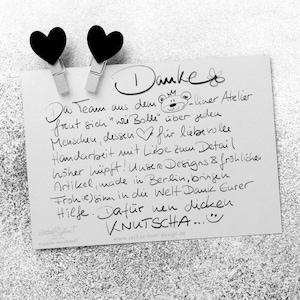 Danke
Das Team aus dem -liner Atelier
freut sich "wie Bolle" über jeden
Menschen, dessen ♡ für liebevolle
Handarbeit mit Liebe zum Detail
höher hüpft! Unsere Designs & fröhlichen
Artikel, made in Berlin, bringen
Froh(s)sinn in die Welt Dank Eurer
Hilfe. Dafür nen dicken
KNUTSCHA...